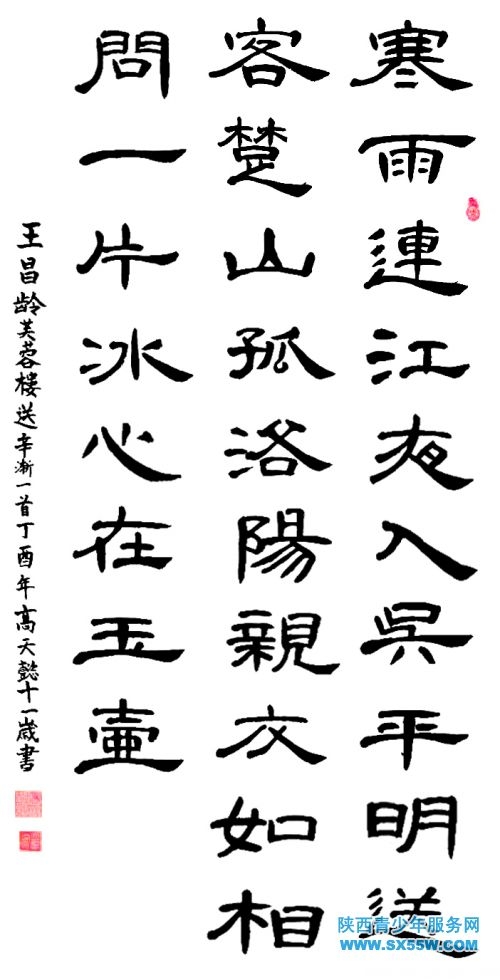 寒雨連江夜入吳平明送
客楚山孤洛陽親友如相
問一片冰心在玉壺
王昌龄芙蓉楼送辛渐一首丁酉年高天懿十一歲書
陕西青少年服务网
www.sx55w.com